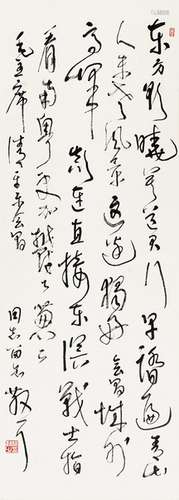 东方欲晓莫道君行早踏遍青山
人未老风景这边独好会昌城外
高峰颠连直接东溟战士指
看南粤更加郁郁葱葱
毛主席清平乐会昌